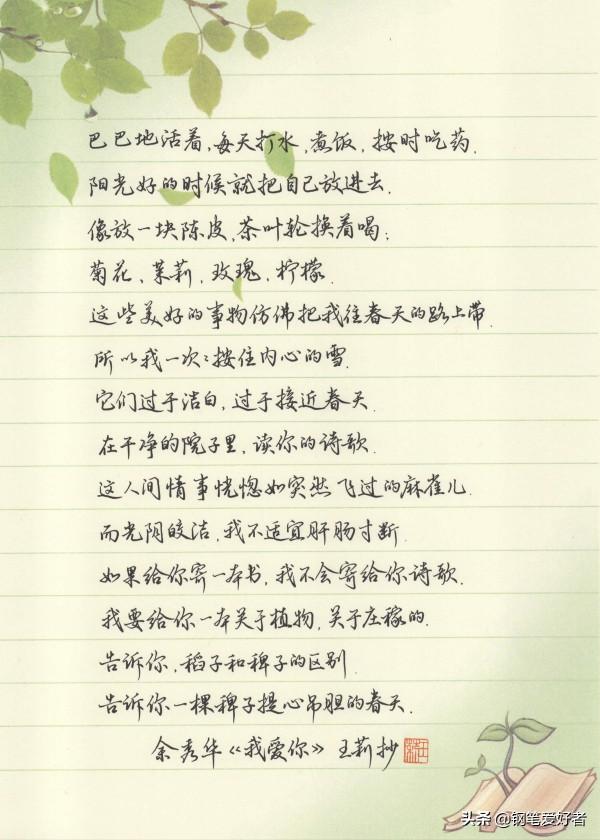 巴巴地活着，每天打水，煮饭，按时吃药.
阳光好的时候就把自己放进去.
像放一块陈皮，茶叶轮换着喝：
菊花，茉莉，玫瑰，柠檬.
这些美好的事物仿佛把我往春天的路上带.
所以我一次：按住内心的雪.
它们过于洁白，过于接近春天.
在干净的院子里，读你的诗歌.
这人间情事恍惚如突然飞过的麻雀儿.
而光阴皎洁，我不适宜肝肠寸断.
如果给你寄一本书，我不会寄给你诗歌.
我要给你一本关于植物，关于庄稼的.
告诉你，稻子和稗子的区别.
告诉你一棵稗子提心吊胆的春天.
余秀华《我爱你》 王莉抄
头条 @钢笔爱好者